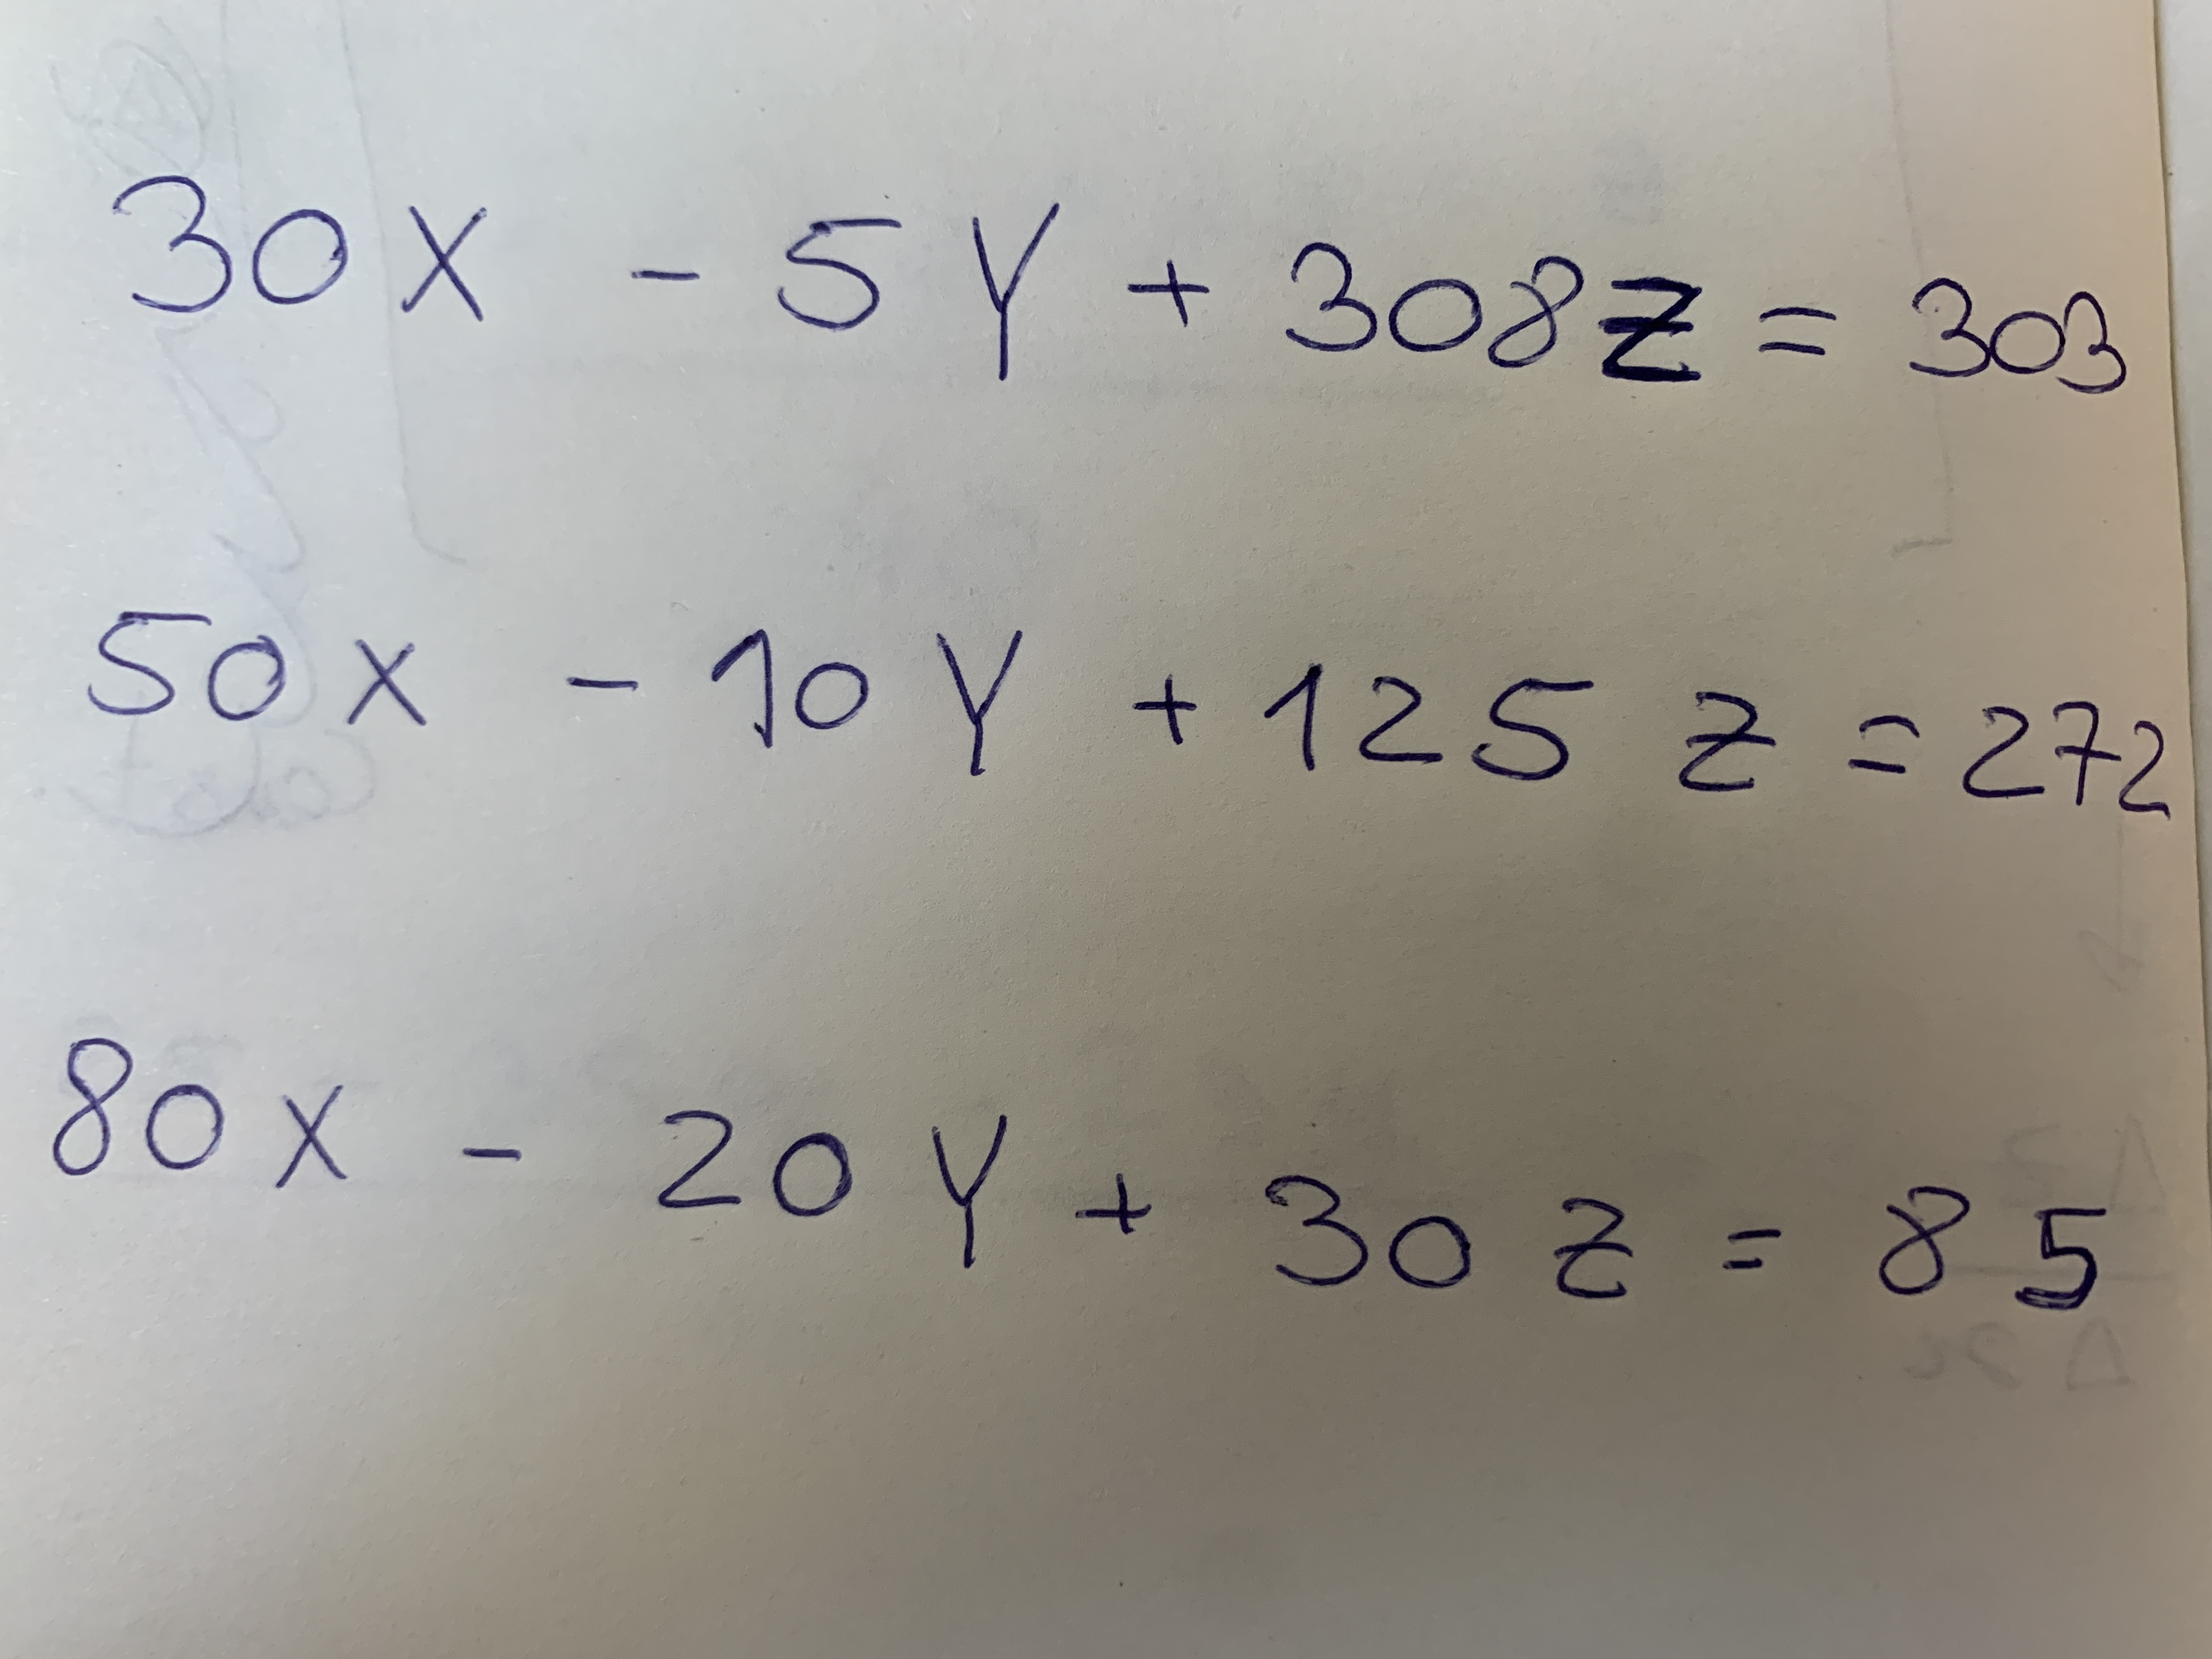 30x - 5y + 308z = 303
50x - 10y + 125z = 272
80x - 20y + 30z = 85